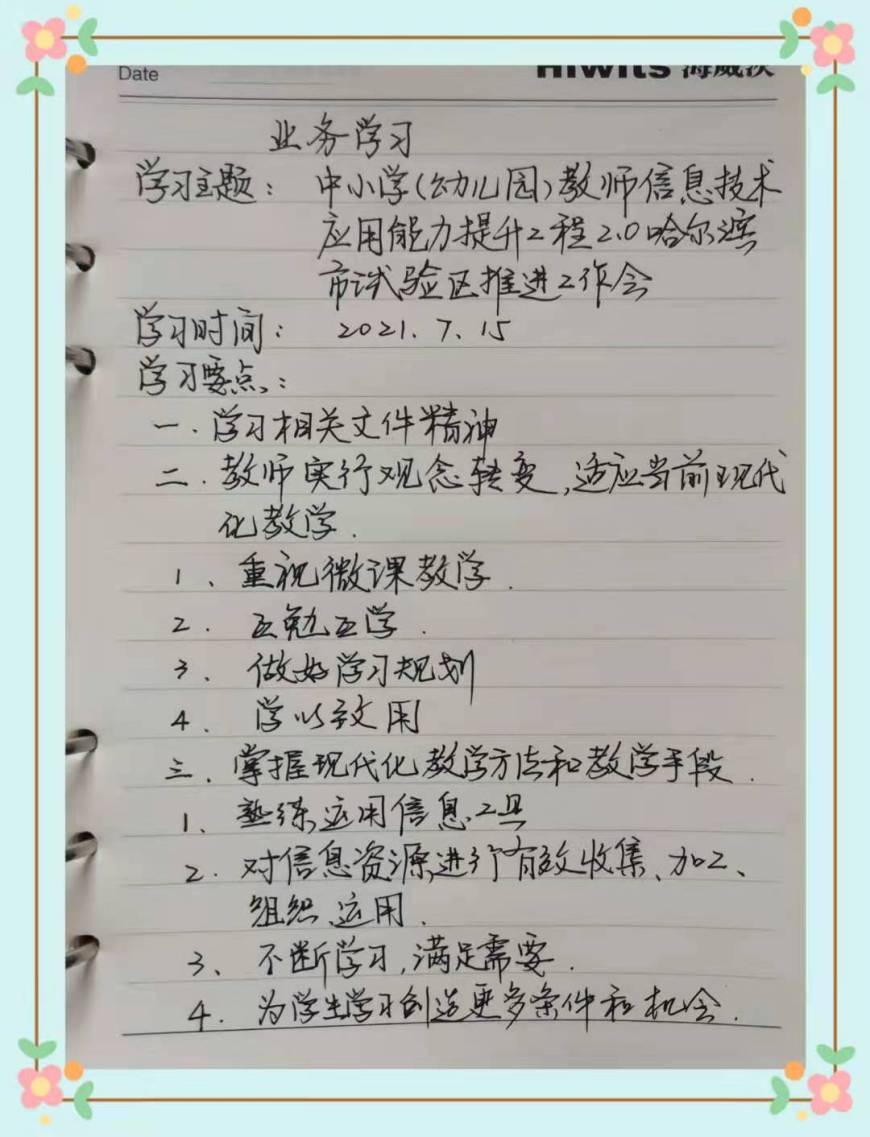 Date
Hiwits 海威茨
业务学习
学习主题： 中小学(幼儿园)教师信息技术
应用能力提升工程2.0哈尔滨
市试验区推进工作会
学习时间： 2021.7.15
学习要点：
一.学习相关文件精神
二.教师实行观念转变,适应当前现代
化教学.
1、重视微课教学.
2.互勉互学.
3.做好学习规划
4.学以致用
三.掌握现代化教学方法和教学手段.
1、熟练运用信息工具
2.对信息资源进行有效收集、加工、
组织、运用.
3、不断学习,满足需要.
4.为学生学习创造更多条件和机会.